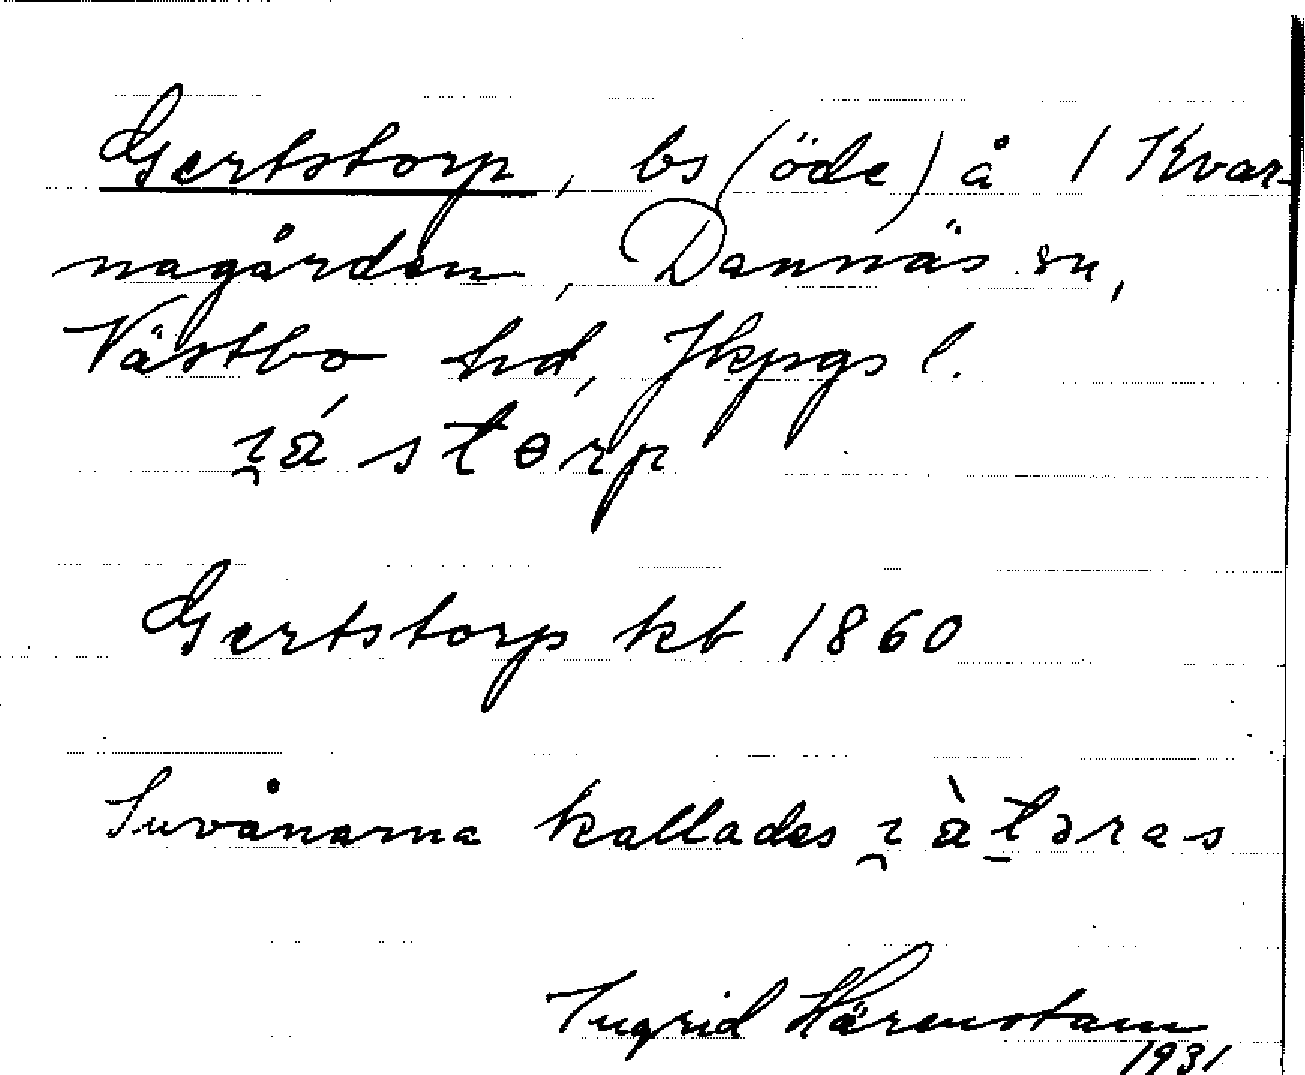 Gertstorp, bs (öde) å 1 Kvar-
nagården, Dannäs sn,
Västbo hd, Jkpgs l.
ɪ̯ástɵrp
Gertstorp kb 1860
Invånarna kallades ɪ̯àt̠əras
Ingrid Härenstam
1931